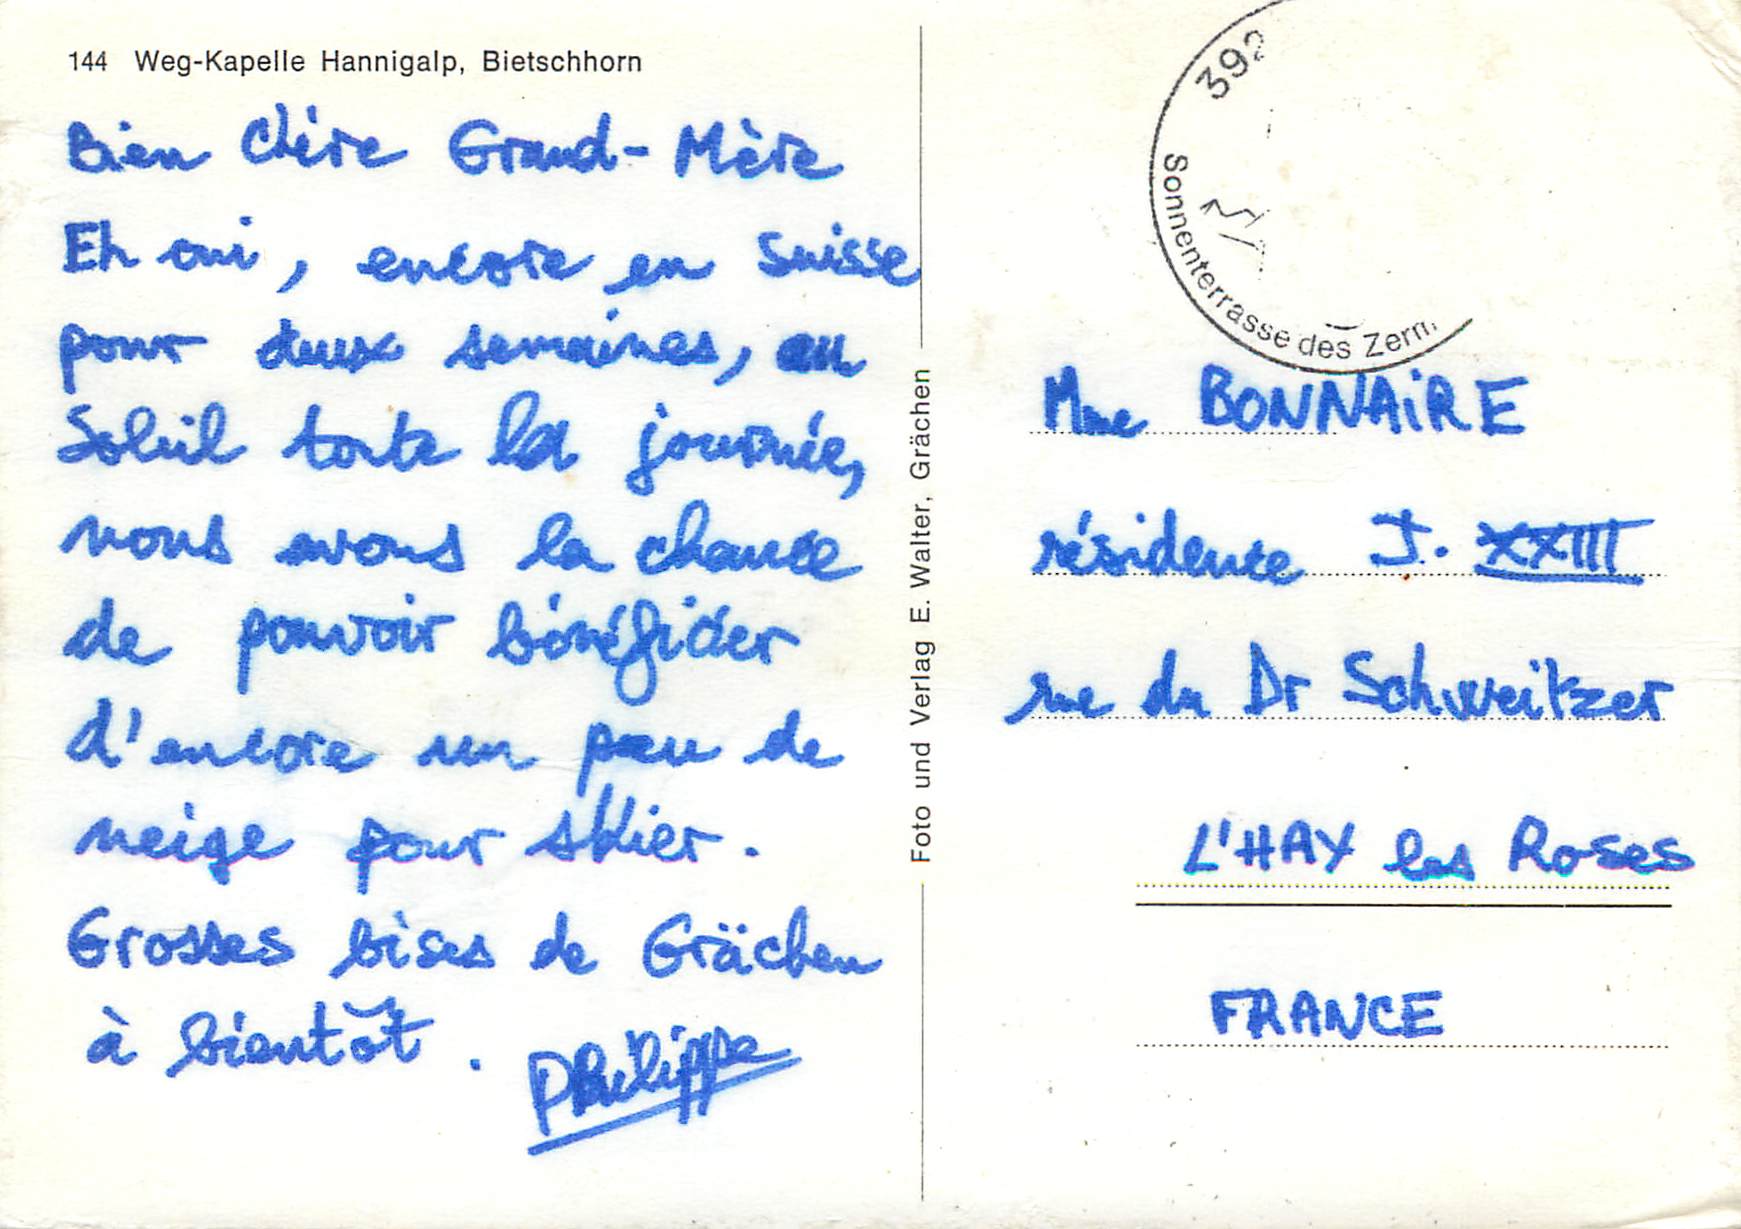 144 Weg-Kapelle Hannigalp, Bietschhorn
Bien Chère Grand-Mère
Eh oui, encore en Suisse
pour deux semaines, au
Soleil toute la journée,
nous avons la chance
de pouvoir bénéficier
d'encore un peu de
neige pour skier.
Grosses bises de Grächen
à bientôt. Philippe
Foto und Verlag E. Walter, Grächen
392
Sonnenterrasse des Zerm
Mme BONNAIRE
résidence J. XXIII
rue du Dr Schweitzer
L'HAY les Roses
FRANCE